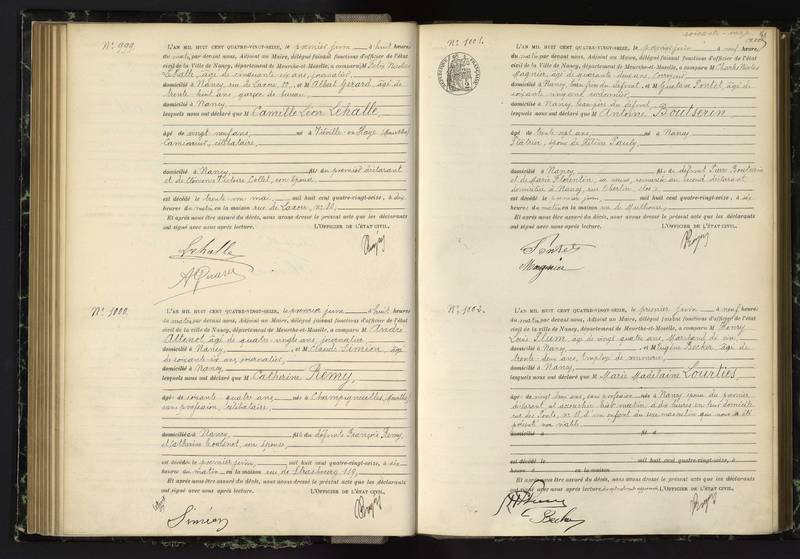 N° 999.
L'AN MIL HUIT CENT QUATRE-VINGT-SEIZE, le premier juin, à huit heures
du matin par devant nous, Adjoint au Maire, délégué faisant fonctions d'officier de l'état
civil de la Ville de Nancy, département de Meurthe-et-Moselle, a comparu M Nicolas
Lehalle, âgé de cinquante six ans, journalier,
domicilié à Nancy, rue de Laxou, et M Albert Gérard, âgé de
trente huit ans, garçon de bureau,
domicilié à Nancy,
lesquels nous ont déclaré que M Camille Léon Lehalle,
âgé de vingt neuf ans, né à Viéville-en-Haye (Meurthe)
Camionneur, célibataire,
domicilié à Nancy, fils du premier déclarant
et de Victoire Collet, son épouse
est décédé le trente un mai, mil huit cent quatre-vingt-seize, à dix
heures du matin en la maison rue de Laxou, N°
Et après nous être assuré du décès, avons dressé le présent acte que les déclarants
ont signé avec nous après lecture. L'OFFICIER DE L'ÉTAT CIVIL,
Lehalle
N° 1000.
L'AN MIL HUIT CENT QUATRE-VINGT-SEIZE, le premier juin à huit heures
du matin par devant nous, Adjoint au Maire, délégué faisant fonctions d'officier de l'état
civil de la ville de Nancy, département de Meurthe-et-Moselle, a comparu M André
âgé de quatre-vingts ans, journalier
domicilié à Nancy, et M Claude Siméon, âgé
de soixante-six ans journalier,
domicilié à Nancy
lesquels nous ont déclaré que M Catherine Remy,
âgée de soixante quatre ans née à Champigneulles (Meurthe)
sans profession, célibataire,
domiciliée à Nancy, fille des défunts François Remy,
et Catherine son épouse
est décédée le premier juin, mil huit cent quatre-vingt-seize, à six
heures du matin en la maison rue de Strasbourg 119,
Et après nous être assuré du décès, avons dressé le présent acte que les déclarants
ont signé avec nous après lecture. L'OFFICIER DE L'ÉTAT CIVIL,
Siméon
soixante-onze
N° 1001.
RÉPUBLIQUE FRANÇAISE
L'AN MIL HUIT CENT QUATRE-VINGT-SEIZE, le premier juin, à neuf heures
du matin par devant nous, Adjoint au Maire, délégué faisant fonctions d'officier de l'état
civil de la Ville de Nancy, département de Meurthe-et-Moselle, a comparu M Charles Nicolas
Magnier, âgé de quarante deux ans,
domicilié à Nancy, beau-père du défunt, et M Gustave Pontet, âgé de
soixante
domicilié à Nancy, beau-père du défunt,
lesquels nous ont déclaré que M Antoine Boutserin
âgé de trente sept ans, né à Nancy
Plâtrier, époux de Hélène Pauly,
domicilié à Nancy, fils du défunt Pierre Boutserin
et de Marie Florentin, sa veuve, remariée au second déclarant
domiciliée à Nancy, rue
est décédé le premier juin, mil huit cent quatre-vingt-seize, à six
heures du matin en la maison rue de Mulhouse,
Et après nous être assuré du décès, avons dressé le présent acte que les déclarants
ont signé avec nous après lecture. L'OFFICIER DE L'ÉTAT CIVIL,
Pontet
Magnier
N° 1002.
L'AN MIL HUIT CENT QUATRE-VINGT-SEIZE, le premier juin à neuf heures
du matin par devant nous, Adjoint au Maire, délégué faisant fonctions d'officier de l'état
civil de la ville de Nancy, département de Meurthe-et-Moselle, a comparu M Henry
Louis Plum, âgé de vingt quatre ans, Marchand de vin,
domicilié à Nancy et M Eugène Becker, âgé de
trente deux ans, Employé de commerce
domicilié à Nancy,
lesquels nous ont déclaré que M Marie Madelaine Lourties,
âgée de vingt deux ans, sans profession née à Nancy épouse du premier
déclarant est accouchée hier matin à dix heures en leur domicile
rue des Ponts, N° d'un enfant du sexe masculin que nous a été
présenté non viable.
domicilié à fil d
est décédé le mil huit cent quatre-vingt-seize, à
heure d en la maison
Et après nous être assuré du décès, avons dressé le présent acte que les déclarants
ont signé avec nous après lecture. L'OFFICIER DE L'ÉTAT CIVIL,
Becker